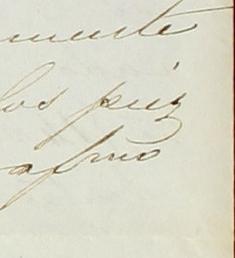 muerte
los piez
afmo